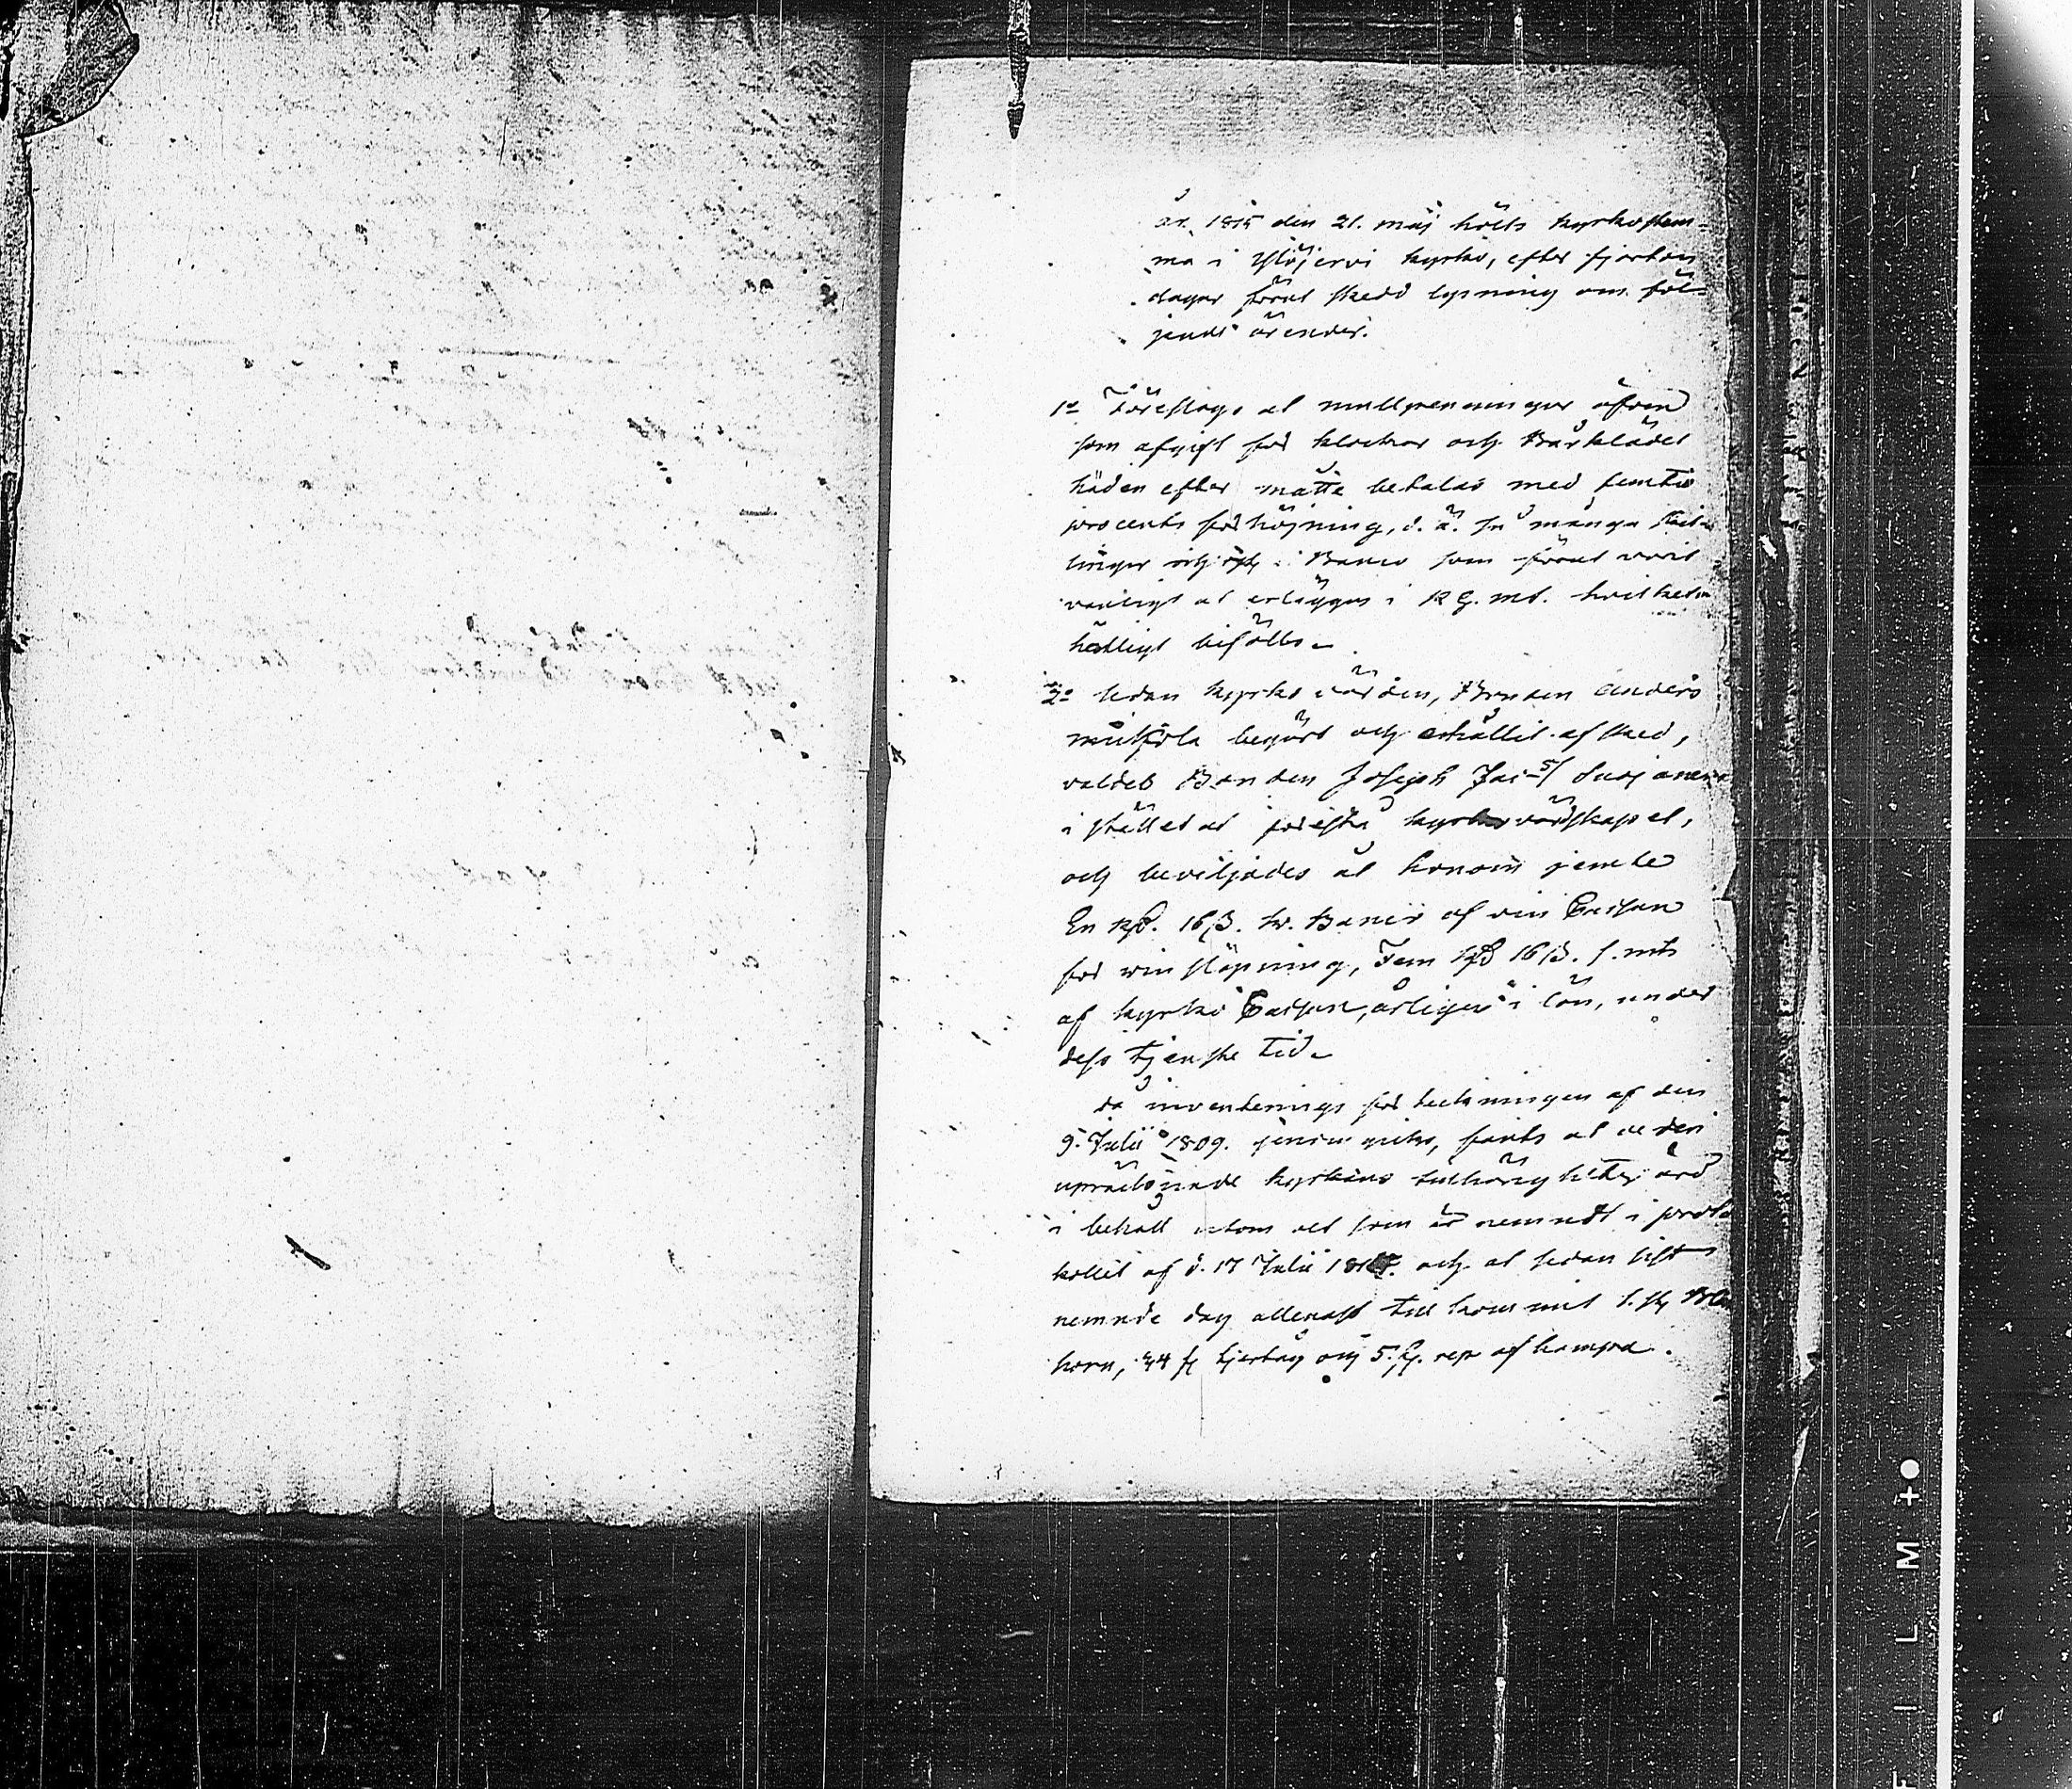 år 1815 den 21. maj hölts kyrkostem-
ma i Ylöjervi kyrko, efter fjorton
dagar förut skedd lysning om föl-
jande ärender.
1o Föreslogs at mullpenningar äfven
som afgift för klockor och Bårklädet
häden efter måtte betalas med femtio
procents förhöjning, d. ä. så många skil-
lingar Banco som förut varit
vanligt at erläggas i RG. mt. hvilket
hälligt bifölls.
2o Sedan kyrko värden, Bonden Anders
Mutkola begärt och erhållit afsked,
valdes Bonden Joseph Jac-s/ Suojanen
i stället at förestå kyrkovärdskapet,
och beviljades åt honom jemte
En R. 16 ß. Banco af vin Cassan
för vin släpning, Fem R 16 ß. s. mt
af kyrko Cassan, årligen i lön, under
dess tjenste tid.
Då inventerings förteckningen af den
9. Julii 1809. genomgicks, fants at de den
upräknade kyrkans tillhörigheter äro
i behåll utom det som är nemndt i proto-
kollet af d. 17 Julii och at sedan sist
nemnde dag allenast till kommit 1. st
horn, 44 tjertåg och 5. rep af hampa.
FILM